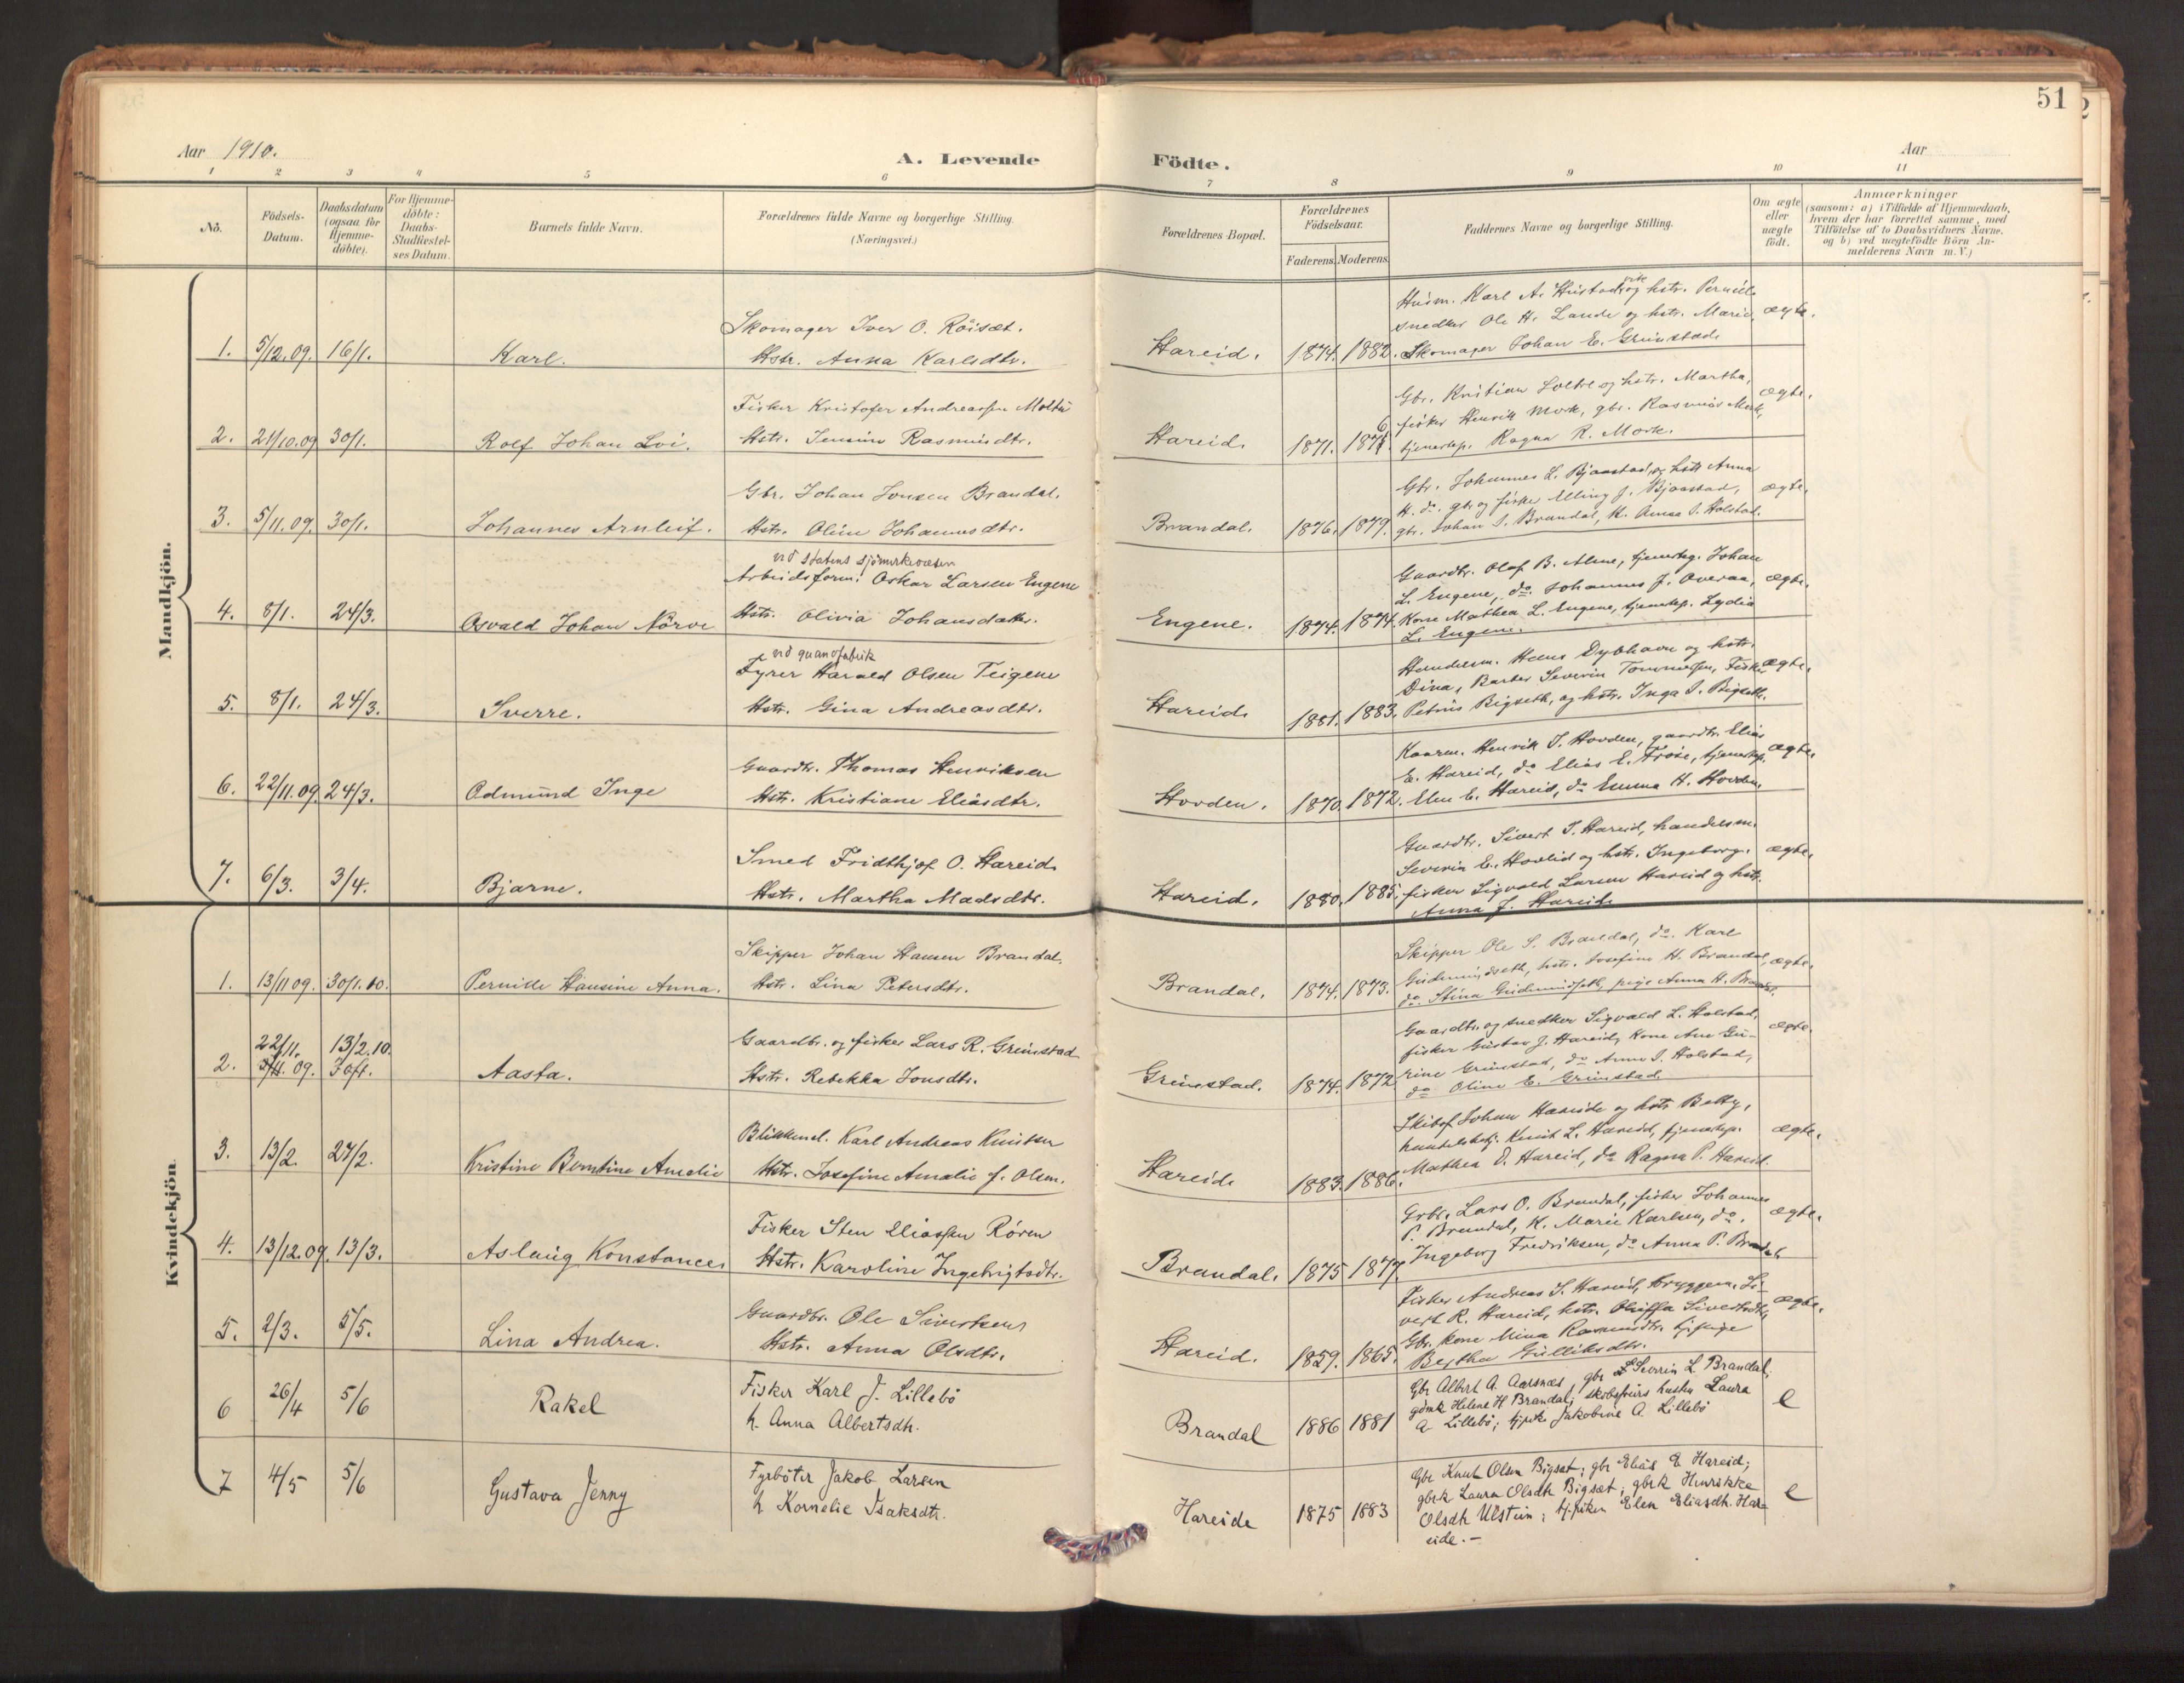 51
Aar 1910.
A. Levende
Födte.
Aar
1 2 3 4 5 6 7 8 9 10 11
No.
Födsels-
Datum.
Daabsdatum
(ogsaa for
Hjemme-
döbte).
For Hjemme-
döbte:
Daabs-
Stadfæstel-
ses Datum.
Barnets fulde Navn.
Forældrenes fulde Navne og borgerlige Stilling.
(Næringsvei.)
Forældrenes Bopæl.
Forældrenes
Födselsaar.
Faderens. Moderens.
Faddernes Navne og borgerlige Stilling.
Om ægte
eller
uægte
födt.
Anmærkninger
(saasom: a) i Tilfælde af Hjemmedaab,
hvem der har forrettet samme, med
Tilföielse af to Daabsvidners Navne.
og b) ved uægtefödte Börn An-
melderens Navn m. V.)
Mandkjön.
1. 5/12.09. 16/1. Karl.
Skomager Iver O. Röisæt.
Hstr. Anna Karlsdtr.
Hareid. 1874. 1882.
Husm. Karl A. Hustad og hstr.
snedker Ole H. Lande og hstr. Marie,
Skomager Johan E. Grimstad.
ægte.
2. 21/10.09 30/1. Rolf Johan Lvi.
Fisker Kristofer Andreassen Moltu
Hstr. Jensine Rasmusdtr.
Hareid. 1871. 1876.
Gbr. Kristian og hstr. Martha,
fisker Henrik Mork, gbr. Rasmus Mork,
tjenestep. Ragna R. Mork.
ægte.
3. 5/11.09. 30/1. Johannes Arnleif.
Gbr. Johan Jonsen Brandal.
Hstr. Oline Johannesdtr.
Brandal. 1876. 1879.
Gbr. Johannes L. Bjaastad, og hstr Anna
H. do, gbr og fisker Elling J. Bjaastad,
gbr. Johan S. Brandal, K. Anna S. Holstad.
ægte.
4. 8/1. 24/3. Osvald Johan Nörve
ved Statens sjömerkevæsen
Arbeidsform. Oskar Larsen Engene
Hstr. Olivia Johansdatter.
Engene. 1874. 1874.
Gaardbr. Olaf B. Alme, tjenesteg. Johan
L. Engene, do Johannes J. Overaa,
Kone Mathea L. Engene, tjenestep. Lydia
L. Engene.
ægte.
5. 8/1. 24/3. Sverre.
ved guanofabrik
Fyrer Harald Olsen Teigene
Hstr. Gina Andreasdtr.
Hareid. 1881. 1883.
Handelsm. Hans Dybhavn og hstr.
Dina, Barber Severin Tommesen, Fisker
Petrus Bigseth, og hstr. Inga P. Bigseth.
ægte.
6. 22/11.09. 24/3. Odmund Inge
Gaardbr. Thomas Henriksen
Hstr. Kristiane Eliasdtr.
Hovden. 1870. 1872.
Henrik T. Hovden, gaardbr. Elias
E. Hareid, do Elias E. Fröise, tjenestep.
Elen E. Hareid, do Emma H. Hovden.
ægte.
7. 6/3. 3/4. Bjarne.
Smed Fridthjof O. Hareid.
Hstr. Martha Madsdtr.
Hareid. 1880. 1885.
Gaardbr. Sivert T. Hareid, handelsm.
Severin E. Hovlid og hstr. Ingeborg.
fisker Sigvald Larsen Hareid og hstr.
Anna J. Hareid.
ægte.
Kvindekjön.
1. 13/11 09. 30/1.10. Pernille Hansine Anna.
Skipper Johan Hansen Brandal.
Hstr. Lina Petersdtr.
Brandal. 1874. 1873.
Skipper Ole S. Brandal, do. Karl
Gudmundseth, hstr. Josefine H. Brandal,
do. Stina Gudmundseth, pige Anna H. Brandal.
ægte.
2. 22/11. 09. 13/2.10. 30/1. Aasta.
Gaardbr. og fisker Lars R. Grimstad
Hstr. Rebekka Jonsdtr.
Grimstad. 1874. 1872
Gaardbr. og snedker Sigvald L. Holstad,
fisker Gustav J. Hareid, Kone Ane Gu-
rine Grimstad, do Anna S. Holstad,
do Oline E. Grimstad
ægte.
3. 13/2. 27/2. Kristine Berntine Amelie
Blikkensl. Karl Andreas Knutsen
Hstr. Josefine Amalie f. Olsen.
Hareid. 1883. 1886.
Johan Hareide og hstr. Betty,
handelsbetj. Knut L. Hareid, tjenestep.
Mathea O. Hareid, do Ragna P. Hareid.
ægte.
4. 13/12.09. 13/3. Aslaug Konstance.
Fisker Sten Eliassen Røren
Hstr. Karoline Ingebrigtsdtr.
Brandal. 1875 1877.
Grbr. Lars O. Brandal, fisker Johannes
P. Brandal, K. Marie Karlsen, do.
Ingeborg Fredriksen, do Anna P. Brandal.
ægte.
5. 2/3. 5/5. Lina Andrea.
Gaardbr. Ole Sivertsen
Hstr. Anna Olsdtr.
Hareid. 1859. 1865.
Fisker Andreas S. Hareid, bryggem. Si-
vert R. Hareid, hstr. Oliffa Sivertsdtr,
Gbr. kone Mina Rasmusdtr. tj.pige
Berthe Gulliksdtr.
ægte.
6 26/4 5/6 Rakel
Fisker Karl J. Lillebö
h. Anna Albertsdtr.
Brandal 1886 1881
Gbr Albert A. Aarsnes, gbr L Severin L Brandal,
gdmk Helene H Brandal; skibsförers hustru Laura
A Lillebö; tjpike Jakobine A. Lillebö
e
7 4/5 5/6 Gustava Jenny
Fyrböter Jakob Larsen
h Kornelie Isaksdtr.
Hareide 1875 1883
Gbr Knut Olsen Bigset; gbr Elias E Hareid;
gbrk Laura Olsdtr Bigset; gbrk Henrikke
Olsdtr Ulstein; tj.piken Elen Eliasdtr. Har-
eide.-
e